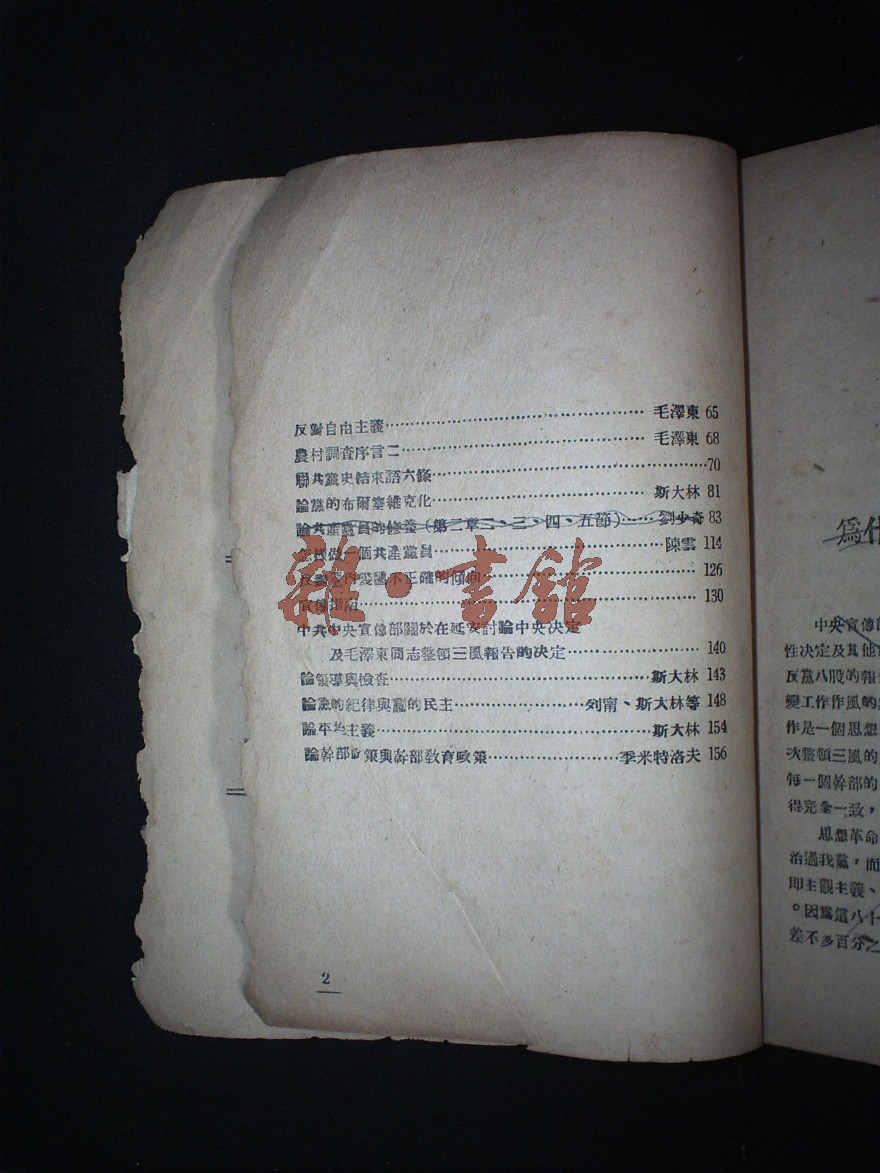 反對自由主義 毛澤東 65
農村調查序言二 毛澤東 68
聯共黨史結束語六條 70
論黨的布爾塞維克化 斯大林 81
論共產黨員的修養(第二章二、三、四、五節) 劉少奇 83
怎樣做一個共產黨員 陳雲 114
反對黨內幾個不正確的傾向 126
宣傳指南 130
中共中央宣傳部關於在延安討論中央決定
及毛澤東同志整頓三風報告的決定 140
論領導與檢查 斯大林 143
論黨的紀律與黨的民主 列甯、斯大林等 148
論平均主義 斯大林 154
論幹部政策與幹部教育政策 季米特洛夫 156
2
雜·書館
爲什
中央宣傳部
性決定及其他
反黨八股的報
變工作作風的
作是一個思想
次整頓三風的
每一個幹部的
得完全一致,
思想革命
治過我黨,而
即主觀主義、
。因爲這八十
差不多百分之